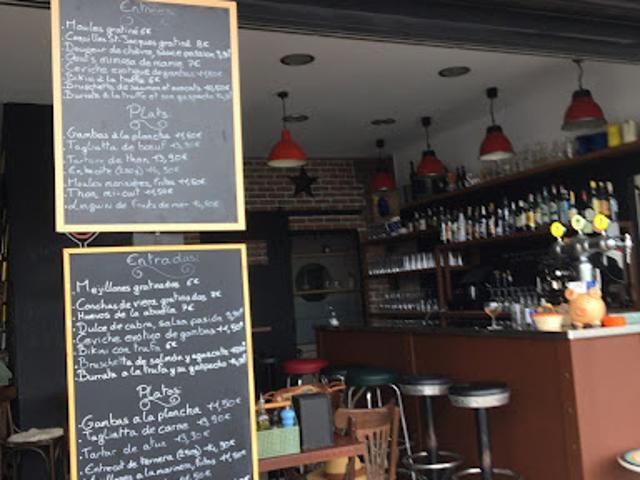 Entrées:
. Moules gratiné 6€
. Coquilles St. Jacques gratiné 8€
. Douceur de chèvre, sauce passion 9,90€
. Oeufs mimosa de mamie 7€
. Ceviche exotique de gambas 11,50€
. Bikini à la truffe 6€
. Bruschetta de saumon et avocat
. Burrata à la truffe et son gaspacho
Plats:
. Gambas à la plancha 14,50€
. Tagliatta de boeuf
. Tartare de thon 13,90€
. Entrecôte (250g)
. Moules marinières, frites 11,50€
. Thon mi-cuit
. Linguini de fruits de mer
Entradas:
. Mejillones gratinados 6€
. Conchas de vieira gratinadas 8€
. Huevos de la abuela 7€
. Dulce de cabra, salsa pasión 9,90€
. Ceviche exotico de gambas 11,50€
. Bikini con trufa 6€
. Bruschetta de salmón y aguacate
. Burrata a la trufa y su gaspacho
Platos:
. Gambas a la plancha 14,50€
. Tagliatta de carne
. Tartar de atun 13,90€
. Entrecot de ternera (250g)
a la marinera, fritas 11,50€